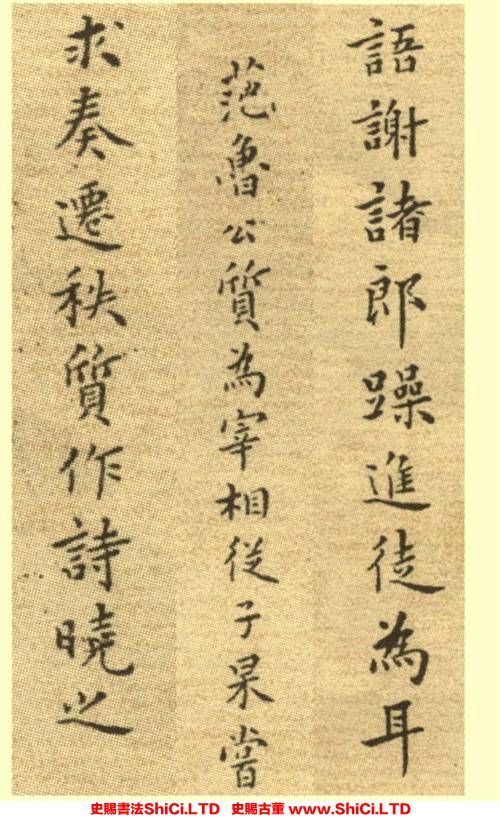 語謝諸郎躁進徒為耳
范魯公質為宰相從子杲嘗
求奏遷秩質作詩曉之
史賜書法ShiCi.LTD 史賜古董 www.ShiCi.LTD